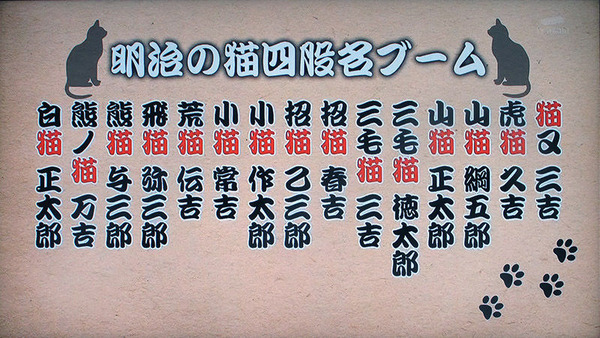 明治の猫四股名ブーム
猫又 三吉
虎猫 久吉
山猫 綱五郎
山猫 正太郎
三毛猫 徳太郎
三毛猫 三吉
招猫 春吉
招猫 乙三郎
小猫 作太郎
小猫 常吉
荒猫 伝吉
飛猫 弥三郎
熊猫 与三郎
熊ノ猫 万吉
白猫 正太郎